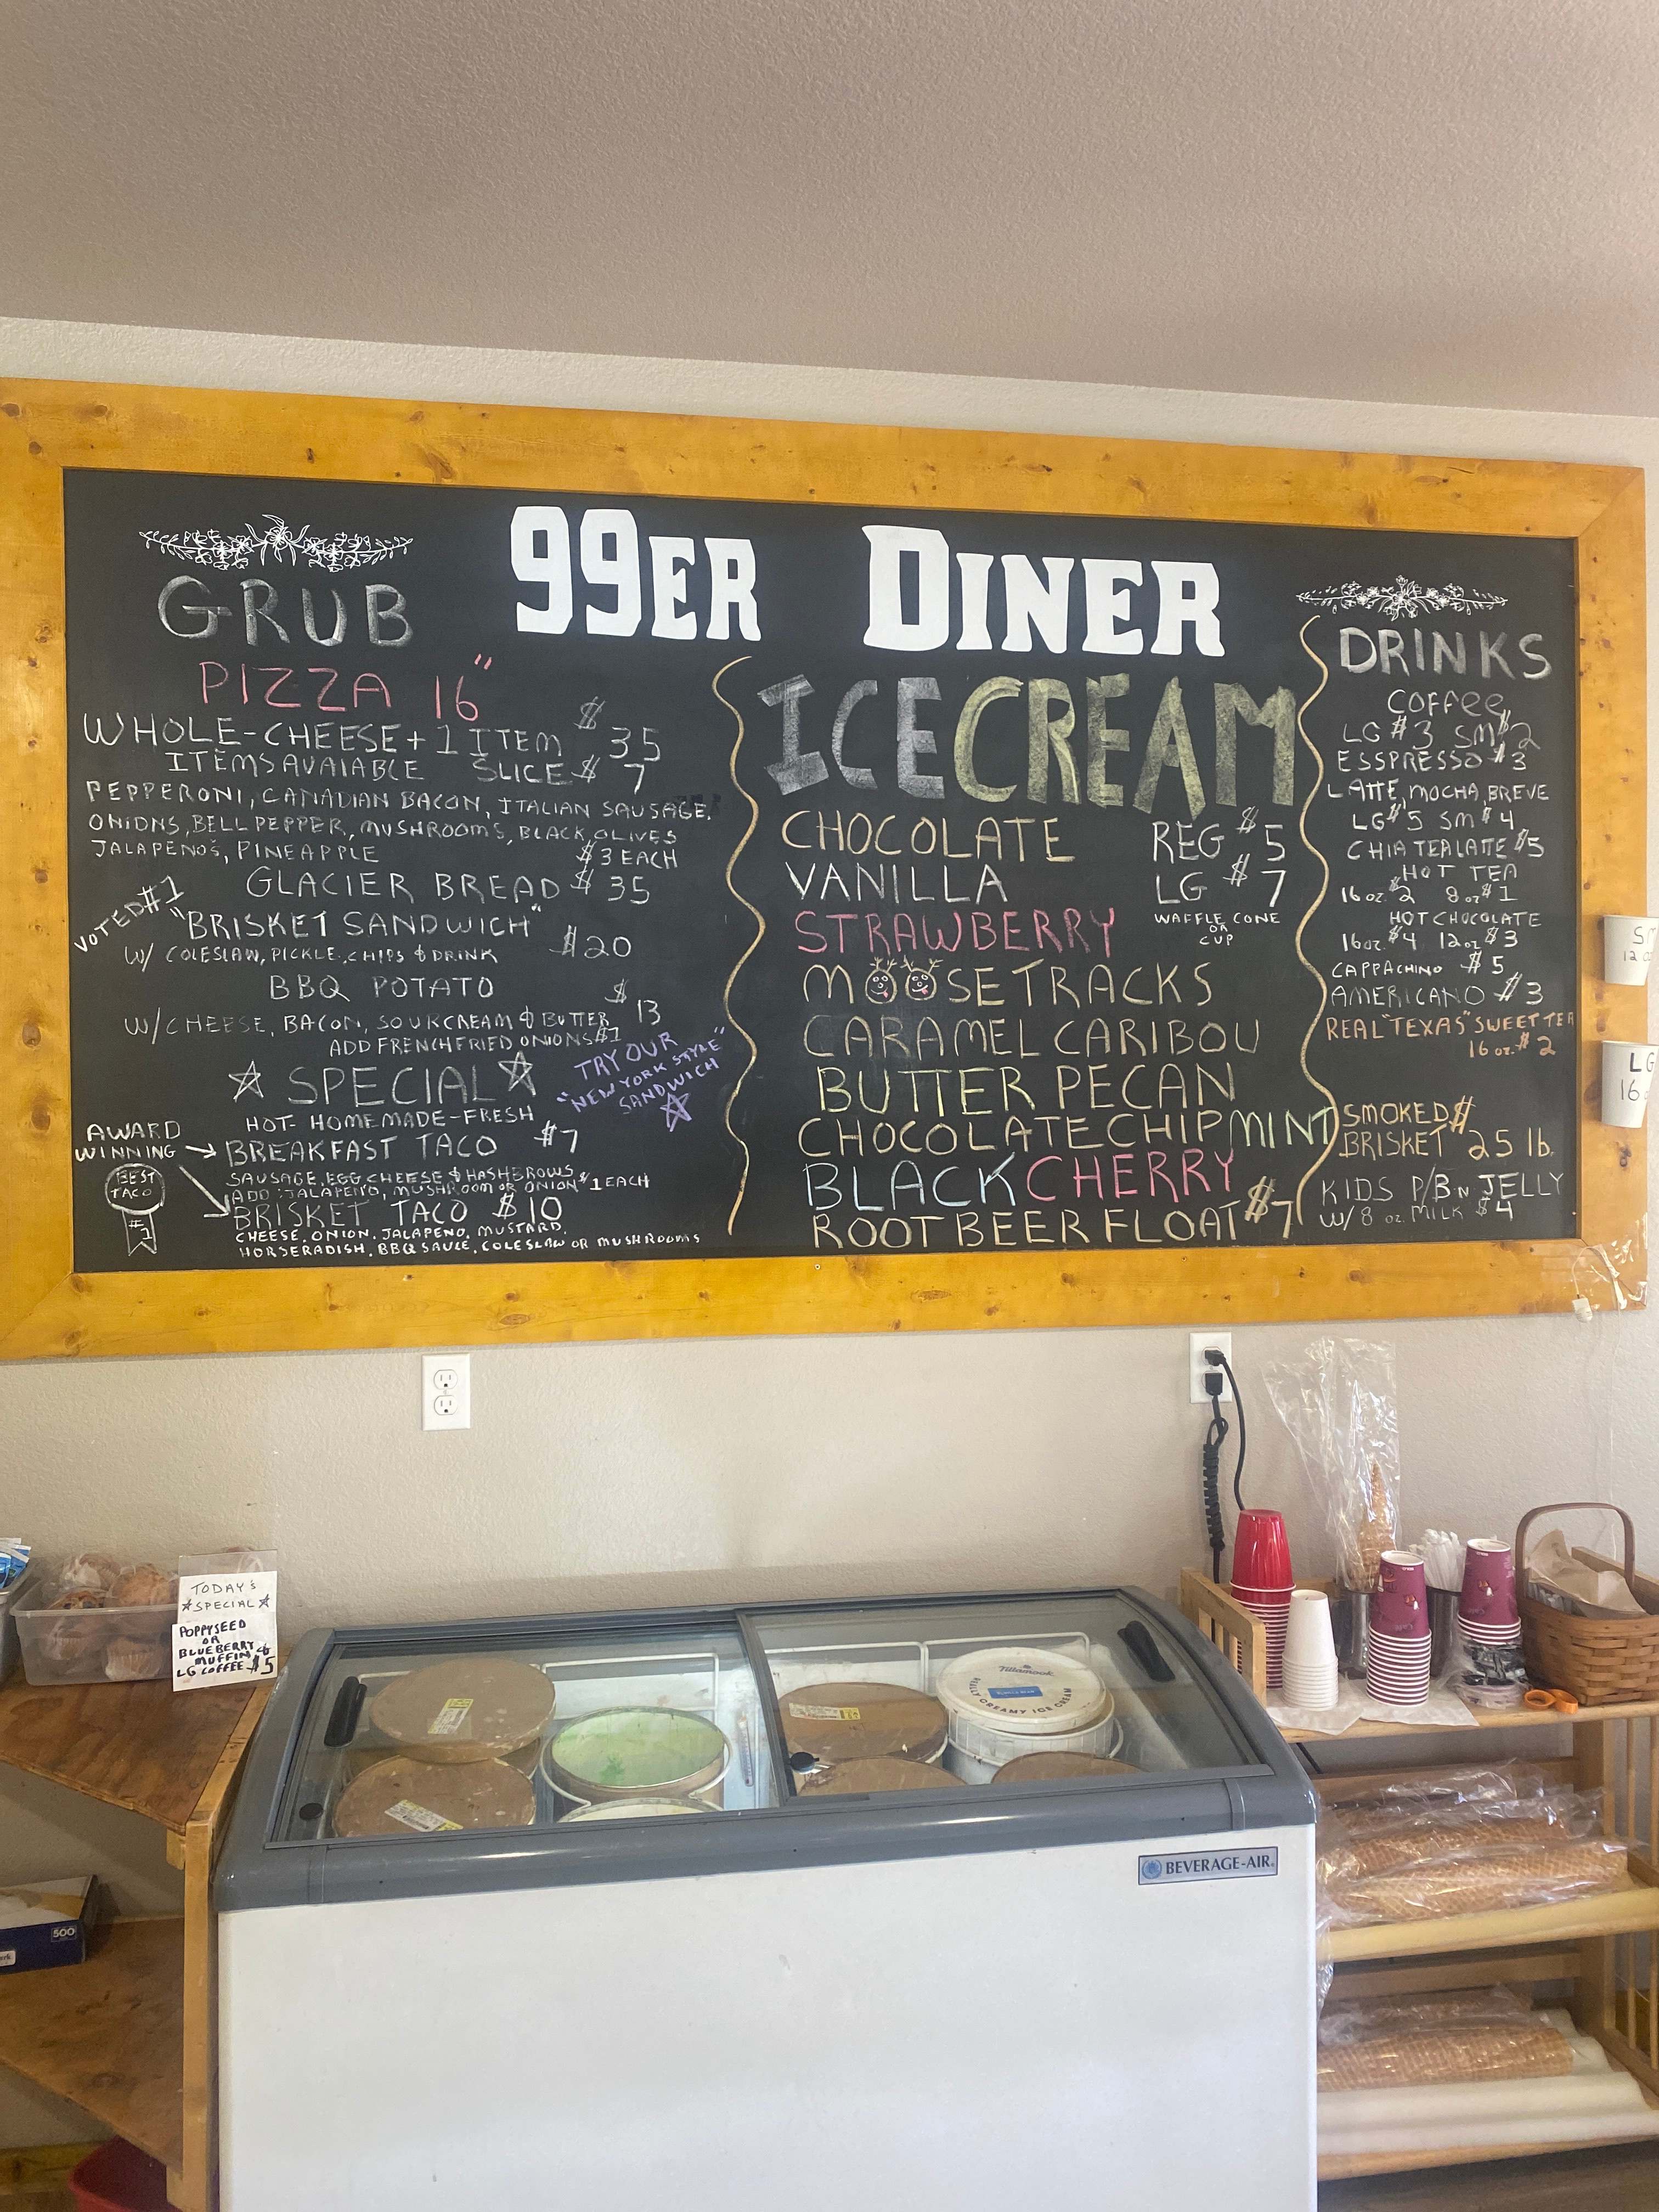 99ER DINER
GRUB
PIZZA 16"
WHOLE-CHEESE + 1 ITEM $35
ITEMS AVAIABLE SLICE $7
PEPPERONI, CANADIAN BACON, ITALIAN SAUSAGE,
ONIONS, BELL PEPPER, MUSHROOMS, BLACK OLIVES
JALAPENOS, PINEAPPLE $3 EACH
GLACIER BREAD $35
VOTED #1
"BRISKET SANDWICH"
W/ COLESLAW, PICKLE, CHIPS & DRINK $20
BBQ POTATO
W/CHEESE, BACON, SOURCREAM & BUTTER $13
ADD FRENCH FRIED ONIONS $1
TRY OUR
"NEW YORK STYLE"
SANDWICH
SPECIAL
HOT-HOMEMADE-FRESH
AWARD
WINNING
BREAKFAST TACO $7
SAUSAGE, EGG, CHEESE & HASHBROWS
ADD JALAPENO, MUSHROOM OR ONION $1 EACH
BEST
TACO
#1
BRISKET TACO $10
CHEESE, ONION, JALAPENO, MUSTARD,
HORSERADISH, BBQ SAUCE, COLESLAW OR MUSHROOMS
ICECREAM
CHOCOLATE REG $5
VANILLA LG $7
WAFFLE CONE
OR
CUP
STRAWBERRY
MOOSETRACKS
CARAMEL CARIBOU
BUTTER PECAN
CHOCOLATECHIPMINT
BLACKCHERRY
ROOTBEER FLOAT $7
DRINKS
COFFEE
LG $3 SM $2
ESSPRESSO $3
LATTE, MOCHA, BREVE
LG $5 SM $4
CHIA TEA LATTE $5
HOT TEA
16 oz. $2 8 oz $1
HOT CHOCOLATE
16oz. $4 12oz $3
CAPPACHINO $5
AMERICANO $3
REAL "TEXAS" SWEET TEA
16 oz. $2
SMOKED
BRISKET $25 lb.
KIDS P/B n JELLY
W/ 8 oz. MILK $4
12
LG
16
TODAY'S
SPECIAL
POPPYSEED
OR
BLUEBERRY
MUFFIN &
LG COFFEE $5
Tillamook
CREAMY ICE CREAM
BEVERAGE-AIR
500